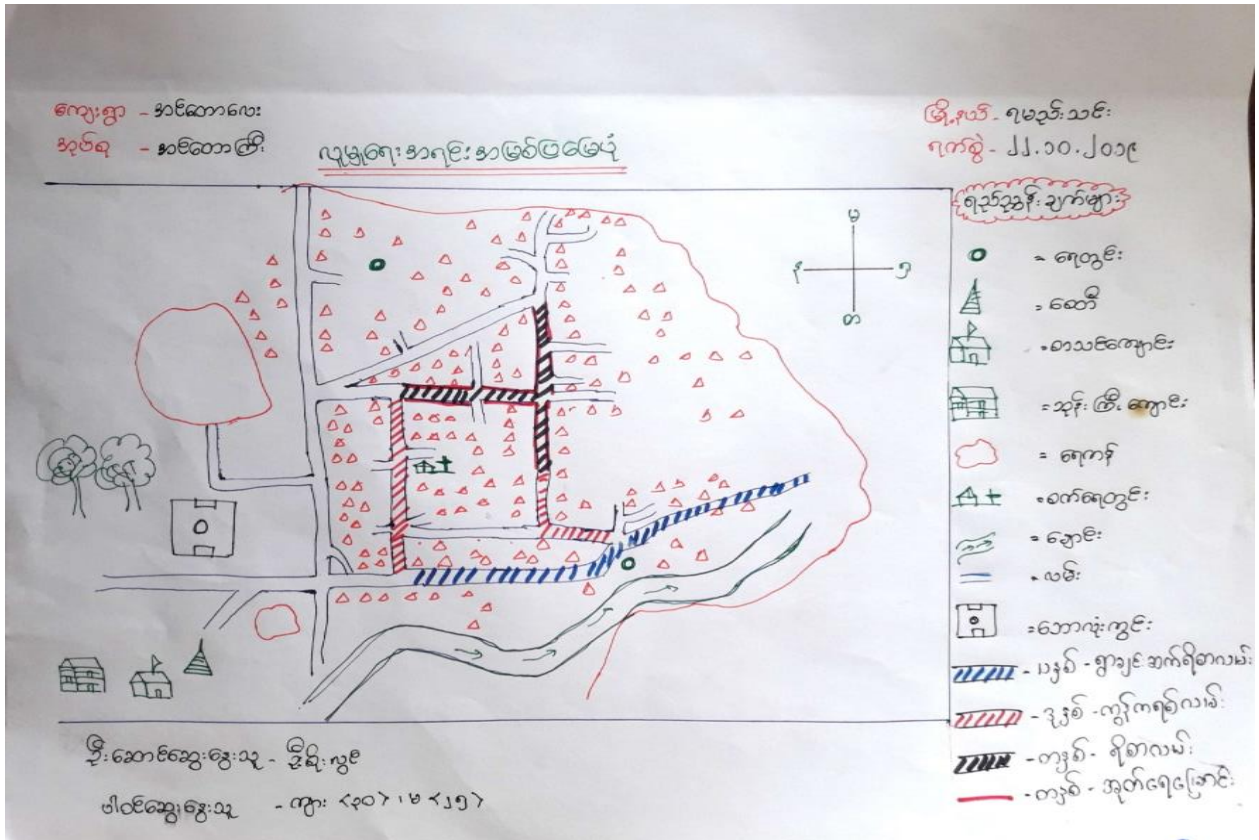 ကျေးရွာ - အင်တောလေး
အုပ်စု - အင်တောကြီး
လူမှုရေးအရင်းအမြစ်ပြမြေပုံ
မြို့နယ် - ရမည်းသင်း
ရက်စွဲ - ၂၂.၁၀.၂၀၁၉
ရည်ညွှန်းချက်များ
မ
န
ဒ
တ
= ရေတွင်း
= စေတီ
= စာသင်ကျောင်း
= ဘုန်းကြီးကျောင်း
= ရေကန်
= စက်ရေတွင်း
= ချောင်း
= လမ်း
= ဘောလုံးကွင်း
- ပနှစ် - ရွာချင်းဆက်ရိစာလမ်း
- ဒုနှစ် - ကွန်ကရစ်လမ်း
- တနှစ် - ရိစာလမ်း
- တနှစ် - အုတ်ရေမြောင်း
ဦးဆောင်ဆွေးနွေးသူ - ဦးစိုးလွင်
ပါဝင်ဆွေးနွေးသူ - ကျား <၃၀> ၊ မ <၂၅>